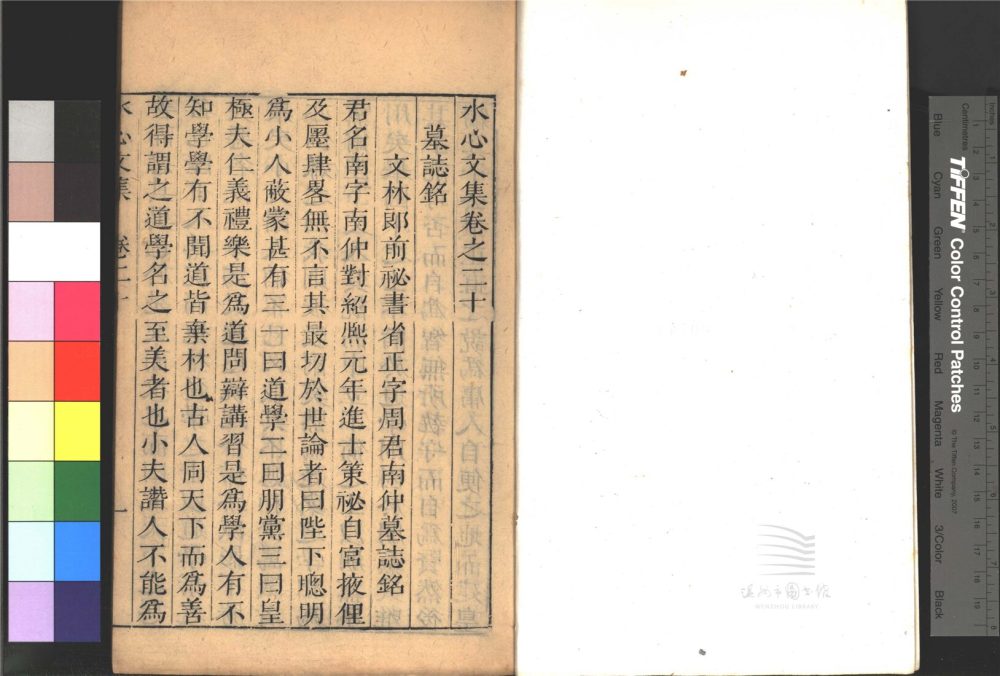 水心文集卷之二十
墓誌銘
文林郎前祕書省正字周君南仲墓誌銘
君名南字南仲對紹熙元年進士策祕自宮掖俚
及壓肆畧無不言其最切於世論者曰陛下聰明
爲小人蔽蒙甚有三一曰道學二曰朋黨三曰皇
極夫仁義禮樂是爲道問辯講習是爲學人有不
知學學有不聞道皆棄材也古人同天下而爲善
故得謂之道學名之至美者也小夫譖人不能爲
水心文集 卷二十 一
溫州市圖書館
WENZHOU LIBRARY
Centimetres
Inches
TIFFEN Color Control Patches
© The Tiffen Company, 2007
Blue Cyan Green Yellow Red Magenta White 3/Color Black